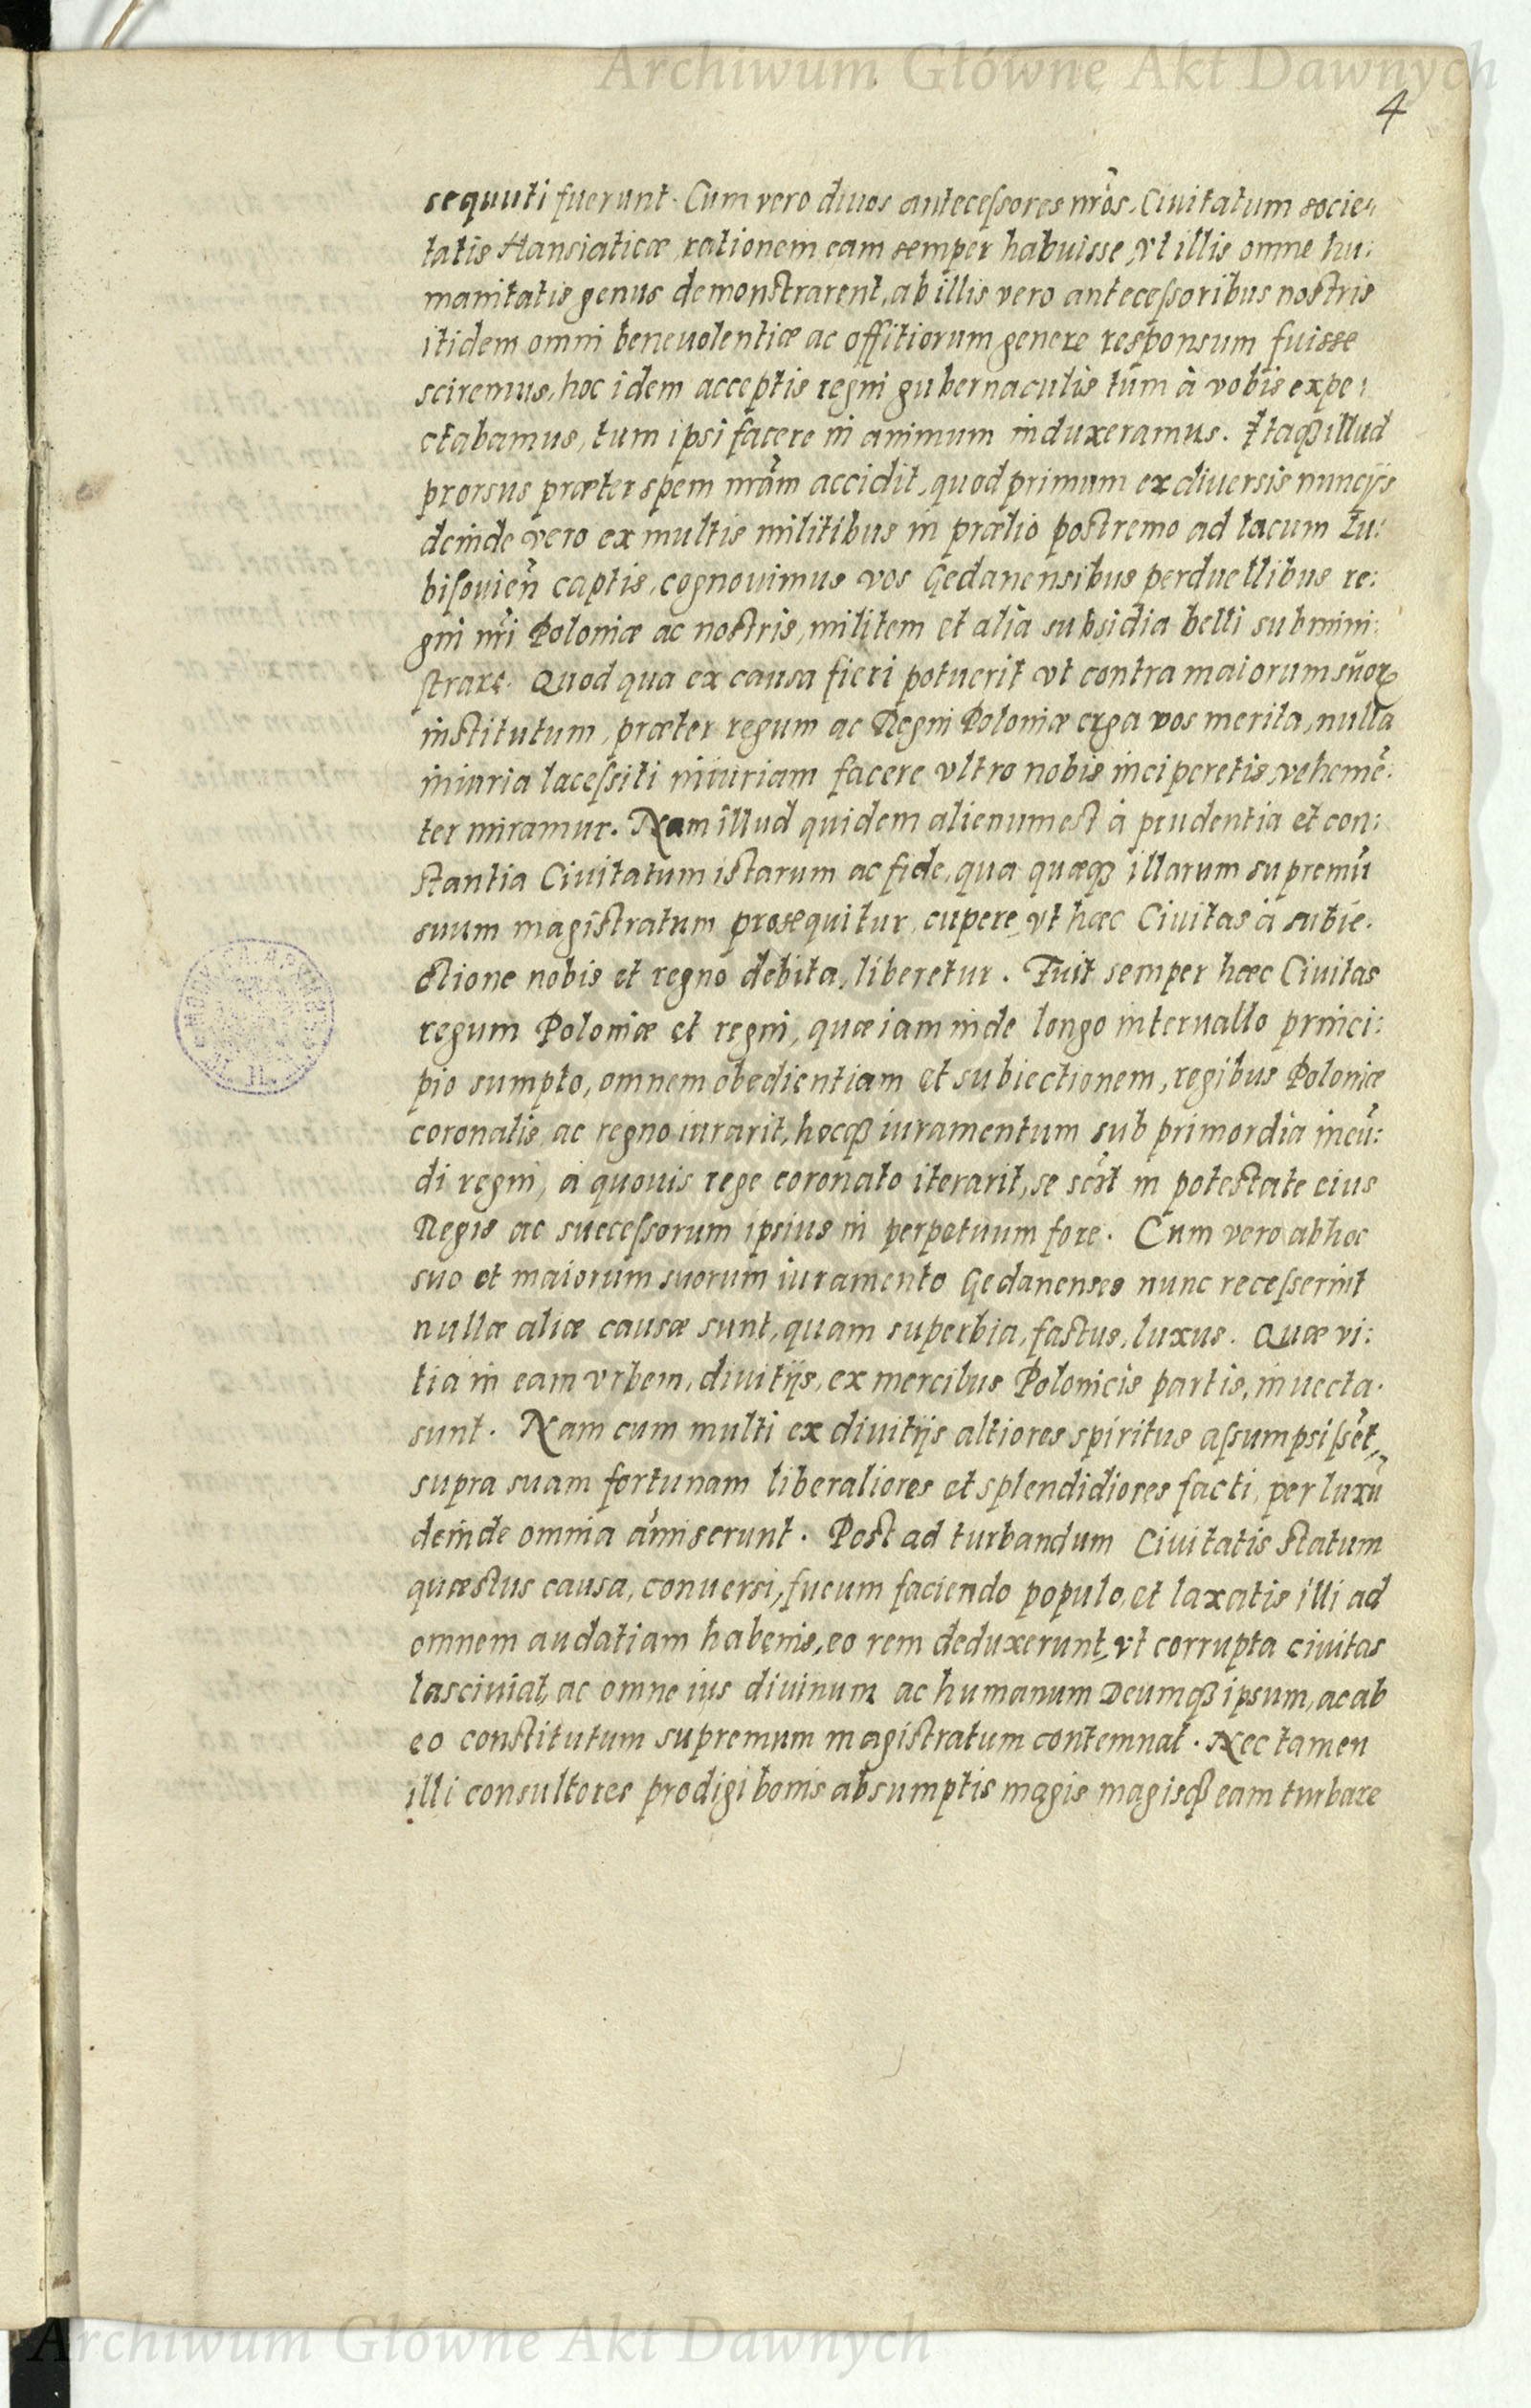 Archiwum Główne Akt Dawnych
4
sequuti fuerunt. Cum vero diuos antecessores nrōs, Ciuitatum socie„
tatis Hansiaticæ, rationem eam semper habuisse, vt illis omne hu:
manitatis genus demonstrarent, ab illis vero antecessoribus nostris
itidem omni beneuolentiæ ac offitiorum genere responsum fuisse
sciremus, hoc idem acceptis regni gubernaculis tum à vobis expe:
ctabamus, tum ipsi facere in animum induxeramus. Itaqȝ illud
prorsus præter spem nrām accidit, quod primum ex diuersis nuncijs
deinde vero ex multis militibus in prælio postremo ad lacum Lu:
bisouien̄ captis, cognouimus vos Gedanensibus perduellibus re:
gni nr̄i Poloniæ ac nostris, militem et alia subsidia belli submini:
strare. Quod qua ex causa fieri potuerit vt contra maiorum suorꝝ
institutum, præter regum ac Regni Poloniæ erga vos merita, nulla
iniuria lacessiti iniuriam facere vltro nobis inciperetis, vehemē:
ter miramur. Nam illud quidem alienum est à prudentia et con:
stantia Ciuitatum istarum ac fide, qua quæqȝ illarum supremū
suum magistratum prosequitur, cupere, vt hæc Ciuitas à subie:
ctione nobis et regno debita, liberetur. Fuit semper hæc Ciuitas
regum Poloniæ et regni, quæ iam inde longo interuallo princi:
pio sumpto, omnem obedientiam et subiectionem, regibus Poloniæ
coronatis ac regno iurarit, hocqȝ iuramentum sub primordia ineū:
di regni, à quouis rege coronato iterarit, se scēt in potestate eius
Regis ac successorum ipsius in perpetuum fore. Cum vero ab hoc
suo et maiorum suorum iuramento Gedanenses nunc recesserint
nullæ aliæ causæ sunt, quam superbia, fastus, luxus. Quæ vi:
tia in eam vrbem, diuitijs, ex mercibus Polonicis partis, inuecta
sunt. Nam cum multi ex diuitijs altiores spiritus assumpsissēt,
supra suam fortunam liberaliores et splendidiores facti, per luxū
deinde omnia amiserunt. Post ad turbandum Ciuitatis statum
quæstus causa, conuersi, fucum faciendo populo, et laxatis illi ad
omnem audatiam habenis, eo rem deduxerunt, vt corrupta ciuitas
lasciuiat, ac omne ius diuinum ac humanum Deumqȝ ipsum, ac ab
eo constitutum supremum magistratum contemnat. Nec tamen
illi consultores prodigi bonis absumptis magis magisqȝ eam turbare
Archiwum Główne Akt Dawnych